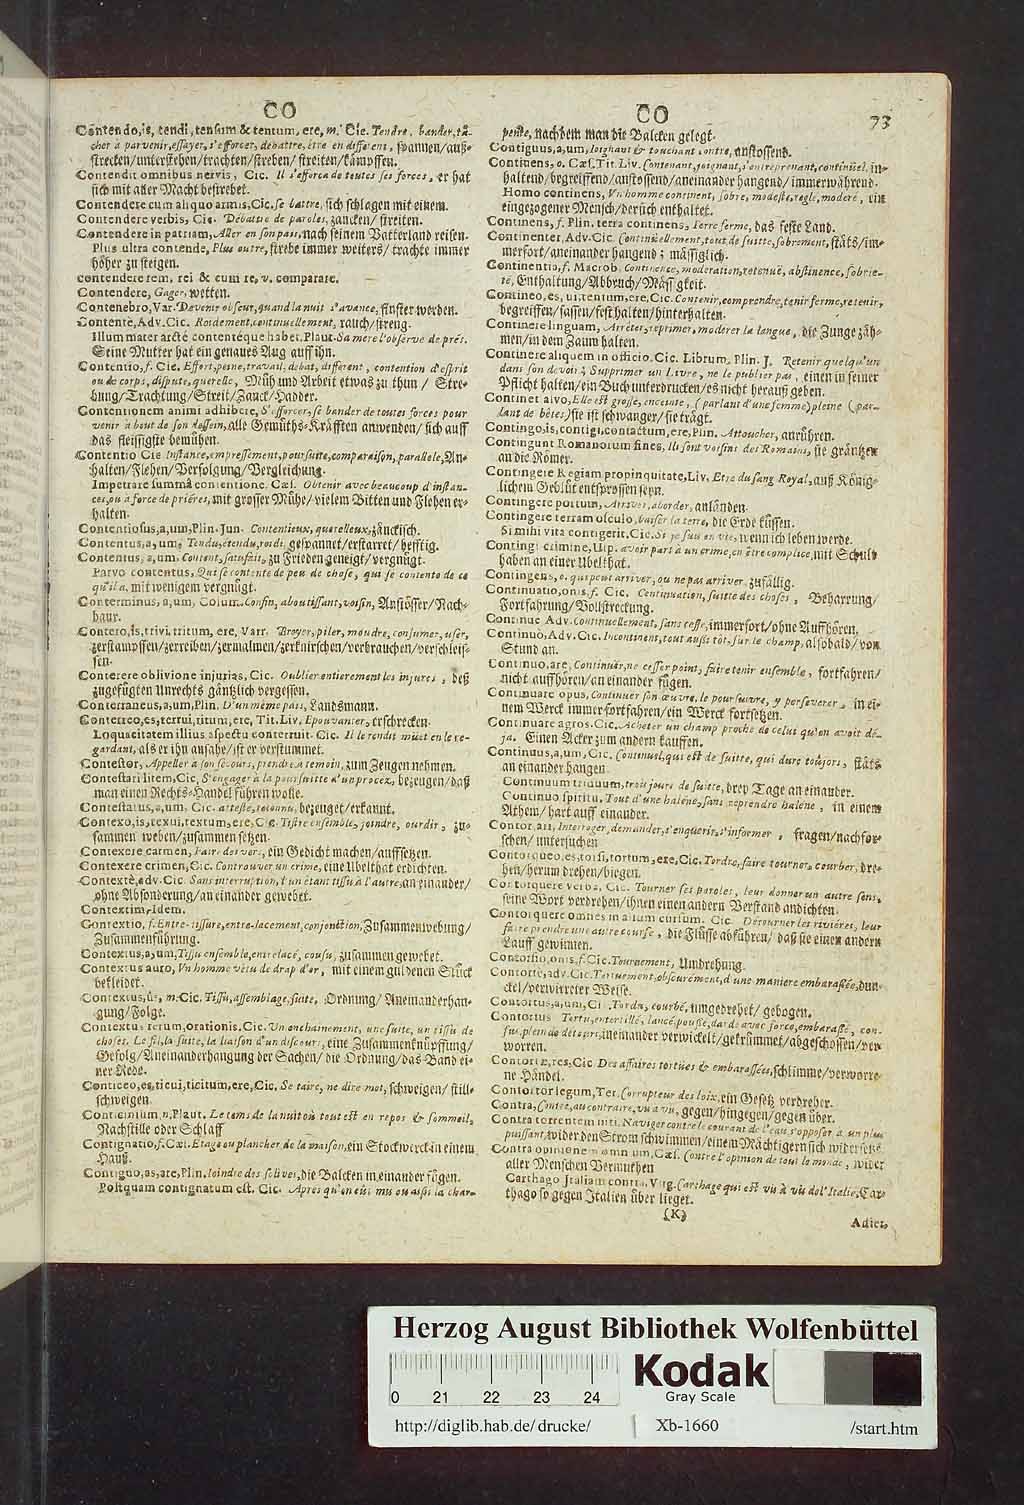 CO
Contendo, is, tendi, tensum & tentum, ere, m. Cic. Tendre, bander, tâ-
cher à parvenir, essayer, s'efforcer, debattre, être en different, spannen/auß-
strecken/unterstehen/trachten/streben/streiten/kämpffen.
Contendit omnibus nervis, Cic. Il s'efforca de toutes ses forces, er hat
sich mit aller Macht bestrebet.
Contendere cum aliquo armis, Cic. se battre, sich schlagen mit einem.
Contendere verbis, Cic. Débattre de paroles, zancken/ streiten.
Contendere in patriam, Aller en son pais, nach seinem Vatterland reisen.
Plus ultra contende, Plus outre, strebe immer weiters/ trachte immer
höher zu steigen.
contendere rem, rei & cum re, v. comparare.
Contendere, Gager, wetten.
Contenebro, Var. Devenir obscur, quand la nuit s'avance, finster werden.
Contentè, Adv. Cic. Roidement, continuellement, rauch/streng.
Illum mater arctè contentéque habet. Plaut. Sa mere l'observe de prés.
Seine Mutter hat ein genaues Aug auff ihn.
Contentio, f. Cic. Effort, peine, travail, debat, different, contention d'esprit
ou de corps, dispute, querelle, Müh und Arbeit etwas zu thun / Stre-
bung/Trachtung/Streit/Zanck/Hadder.
Contentionem animi adhibere, S'efforcer, se bander de toutes forces pour
venir à bout de son dessein, alle Gemüths-Kräfften anwenden/ sich auff
das fleissigste bemühen.
Contentio Cic Instance, empressement, poursuite, comparaison, parallele, An-
halten/Flehen/Verfolgung/Vergleichung.
Impetrare summâ contentione. Cæs. Obtenir avec beaucoup d'instan-
ces, ou à force de priéres, mit grosser Mühe/vielem Bitten und Flehen er-
halten.
Contentiosus, a, um, Plin. Jun. Contentieux, querelleux, zänckisch.
Contentus, a, um, Tendu, étendu, roidi, gespannet/erstarret/hefftig.
Contentus, a, um, Content, satisfait, zu Frieden geneigt/vergnügt.
Parvo contentus, Qui se contente de peu de chose, qui se contente de ce
qu'il a, mit wenigem vergnügt.
Conterminus, a, um, Colum. Confin, aboutissant, voisin, Anstösser/Nach-
baur.
Contero, is, trivi, tritum, ere, Varr. Broyer, piler, moudre, consumer, user,
zerstampffen/zerreiben/zermalmen/zerknirschen/verbrauchen/verschleis-
sen.
Conterere oblivione injurias, Cic. Oublier entierement les injures, deß
zugefügten Unrechts gäntzlich vergessen.
Conterraneus, a, um, Plin. D'un même pais, Landsmann.
Conterreo, es, terrui, titum, ere, Tit. Liv. Epouvanter, erschrecken.
Loquacitatem illius aspectu conterruit. Cic. Il le rendit müet en le re-
gardant, als er ihn ansahe/ist er verstummet.
Contestor, Appeller à son secours, prendre à temoin, zum Zeugen nehmen.
Contestari litem, Cic, S'engager à la poursuitte d'un procez, bezeugen/daß
man einen Rechts-Handel führen wolle.
Contestatus, a, um, Cic. attesté, reconnu, bezeuget/erkannt.
Contexo, is, texui, textum, ere, Cic. Tistre ensemble, joindre, ourdir, zu-
sammen weben/zusammen setzen.
Contexere carmen, Faire des vers, ein Gedicht machen/auffsetzen.
Contexere crimen, Cic. Controuver un crime, eine Ubelthat erdichten.
Contextè, adv. Cic. Sans interruption, l'un étant tissu à l'autre, an einander/
ohne Absonderung/an einander gewebet.
Contextim, Idem.
Contextio, f. Entre-tissure, entre-lacement, conjonction, Zusammenwebung/
Zusammenführung.
Contextus, a, um, Tissu ensemble, entrelacé, cousu, zusammen gewebet.
Contextus auro, Un homme vêtu de drap d'or, mit einem guldenen Stück
bekleidet.
Contextus, ûs, m. Cic. Tissu, assemblage, suite, Ordnung/ Aneinanderhan-
gung/Folge.
Contextus rerum, orationis. Cic. Un enchainement, une suite, un tissu de
choses. Le fil, la suite, la liaison d'un discours, eine Zusammenknüpffung/
Gefolg/Aneinanderhangung der Sachen/ die Ordnung/das Band ei-
ner Rede.
Conticeo, es, ticui, ticitum, ere, Cic. Se taire, ne dire mot, schweigen/ still-
schweigen.
Conticinium, n. Plaut. Le tems de la nuit où tout est en repos & sommeil,
Nachtstille oder Schlaff
Contignatio, f. Cæs. Etage ou plancher de la maison, ein Stockwerck in einem
Hauß.
Contigno, as, are, Plin. Joindre des solives, die Balcken in einander fügen.
Postquam contignatum est. Cic. Apres qu'on eut mis ou assis la char-
CO
73
pente, nachdem man die Balcken gelegt.
Contiguus, a, um, Joignant & touchant contre, anstossend.
Continens, o. Cæs, Tit. Liv. Contenant, joignant, s'entreprenant, continüel, in-
haltend/begreiffend/anstossend/aneinander hangend/ immerwährend.
Homo continens, Un homme continent, sobre, modeste, reglé, moderé, ein
eingezogener Mensch/der sich enthaltet.
Continens, f. Plin. terra continens, Terre ferme, das feste Land.
Continenter, Adv. Cic. Continüellement, tout de suitte, sobrement, stäts/im-
merfort/aneinander hangend; mässiglich.
Continentia, f. Macrob. Continence, moderation, retenuë, abstinence, sobrie-
té, Enthaltung/Abbruch/Mässigkeit.
Contineo, es, ui, tentum, ere, Cic. Contenir, comprendre, tenir ferme, retenir,
begreiffen/fassen/fest halten/hinterhalten.
Continere linguam, Arrêter, reprimer, moderer la langue, die Zunge zäh-
men/in dem Zaum halten.
Continere aliquem in officio. Cic. Librum, Plin. J. Retenir quelqu'un
dans son devoir; Supprimer un Livre, ne le publier pas, einen in seiner
Pflicht halten/ein Buch unterdrucken/es nicht herauß geben.
Continet alvo, Elle est grosse, enceinte, (parlant d'une femme) pleine (par-
lant de bêtes) sie ist schwanger/sie trägt.
Contingo, is, contigi, contactum, ere, Plin. Attoucher, anrühren.
Contingunt Romanorum fines, Ils sont voisins des Romains, sie gräntzen
an die Römer.
Contingere Regiam propinquitate, Liv. Etre du sang Royal, auß König-
lichem Geblüt entsprossen seyn.
Contingere portum, Arriver, aborder, anländen.
Contingere terram osculo, baiser la terre, die Erde küssen.
Si mihi vita contigerit, Cic. Si je suis en vie, wenn ich leben werde.
Contingi crimine, Ulp. avoir part à un crime, en être complice, mit Schuld
haben an einer Ubelthat.
Contingens, o. qui peut arriver, ou ne pas arriver, zufällig.
Continuatio, onis, f. Cic. Continuation, suitte des choses, Beharrung/
Fortfahrung/Vollstreckung.
Continuè Adv. Continuellement, sans cesse, immerfort/ohne Auffhören.
Continuò, Adv. Cic. Incontinent, tout außi tôt, sur le champ, alsobald/von
Stund an.
Continuo, are, Continuër, ne cesser point, faire tenir ensemble, fortfahren/
nicht auffhören/an einander fügen.
Continuare opus, Continuer son œuvre, le poursuivre, y perseverer, in ei-
nem Werck immer fortfahren/ein Werck fortsetzen.
Continuare agros. Cic. Acheter un champ proche de celui qu'on avoit dé-
ja. Einen Acker zum andern kauffen.
Continuus, a, um, Cic. Continuel, qui est de suitte, qui dure toûjours, stäts
an einander hangen.
Continuum triduum, trois jours de suitte, drey Tage an einander.
Continuo spiritu, Tout d'une haleine, sans reprendre haleine, in einem
Athem/ hart auff einander.
Contor, ari, Interroger, demander, s'enquerir, s'informer, fragen/nachfor-
schen/ untersuchen
Contorqueo, es, torsi, tortum, ere, Cic. Tordre, faire tourner, courber, dre-
hen/herum drehen/biegen.
Contorquere verba, Cic. Tourner ses paroles, leur donner un autre sens,
seine Wort verdrehen/ihnen einen andern Verstand andichten.
Contorquere omnes in alium cursum. Cic. Détourner les riviéres, leur
faire prendre une autre course, die Flüsse abführen/ daß sie einen andern
Lauff gewinnen.
Contortio, onis, f. Cic. Tournement, Umdrehung.
Contortè, adv. Cic. Tortuement, obscurément, d'une maniere embaraßée, dun-
ckel/verwirreter Weise.
Contortus, a, um, Cic. Tordu, courbé, umgedrehet/ gebogen.
Contortus Tortu, entortillé, lancé, poussé, dardé avec force, embaraßé, con-
fus, plein de détours, in einander verwickelt/gekrümmet/abgeschossen/ver-
worren.
Contortæ, res, Cic Des affaires tortües & embaraßées, schlimme/verworre-
ne Händel.
Contortor legum, Ter. Corrupteur des loix, ein Gesetz verdreher.
Contra, Contre, au contraire, vis à vis, gegen/hingegen/gegen über.
Contra torrentem niti. Naviger contre le courant de l'eau, s'opposer à un plus
puissant, wider den Strom schwimmen/einem Mächtigern sich widersetzen
Contra opinionem omnium, Cæs. Contre l'opinion de tout le monde, wider
aller Menschen Vermuthen
Carthago Italiam contra, Virg. Carthage qui est vis à vis de l'Italie, Car-
thago so gegen Italien über lieget.
(K)
Adier,
Herzog August Bibliothek Wolfenbüttel
0 21 22 23 24
Kodak
Gray Scale
http://diglib.hab.de/drucke/ Xb-1660 /start.htm